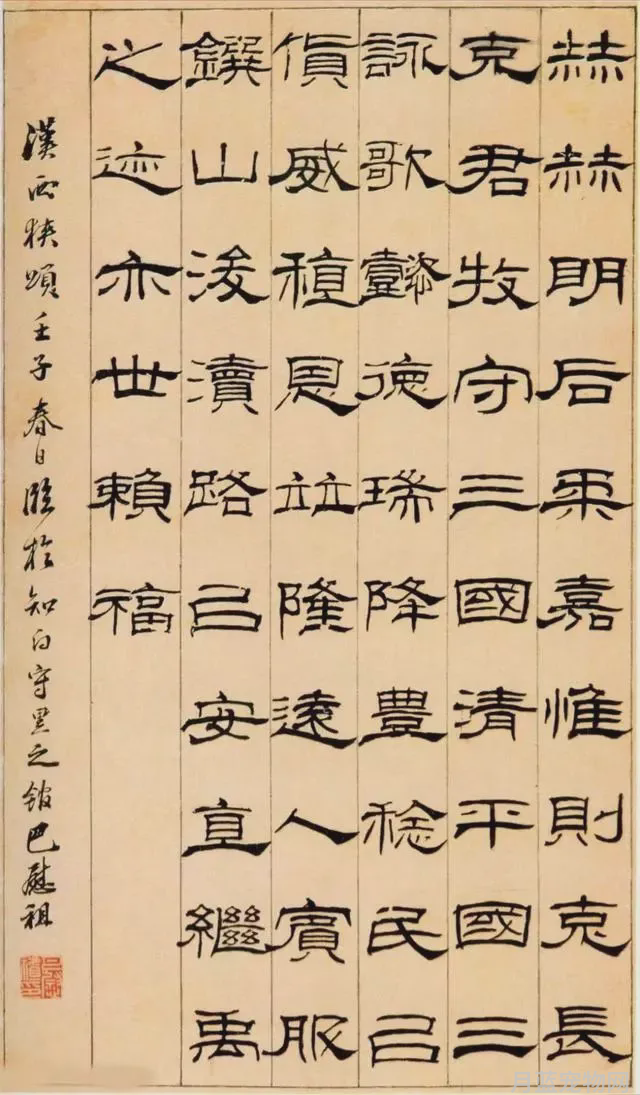 赫赫明后柔嘉惟則克長
克君牧守三國清平國三
詠歌懿德瑞降豐稔民㠯
貨威稙恩竝隆遠人賓服
鐉山浚瀆路㠯安直繼禹
之迹亦世賴福
漢西狹頌壬子春日臨於知白守黑之館巴慰祖